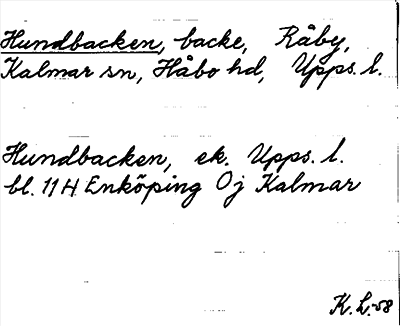 Hundbacken, backe, Råby,
Kalmar sn, Håbo hd, Upps. l.
Hundbacken, ek. Upps. l.
bl. 11 H Enköping Oj Kalmar
K. L. -58